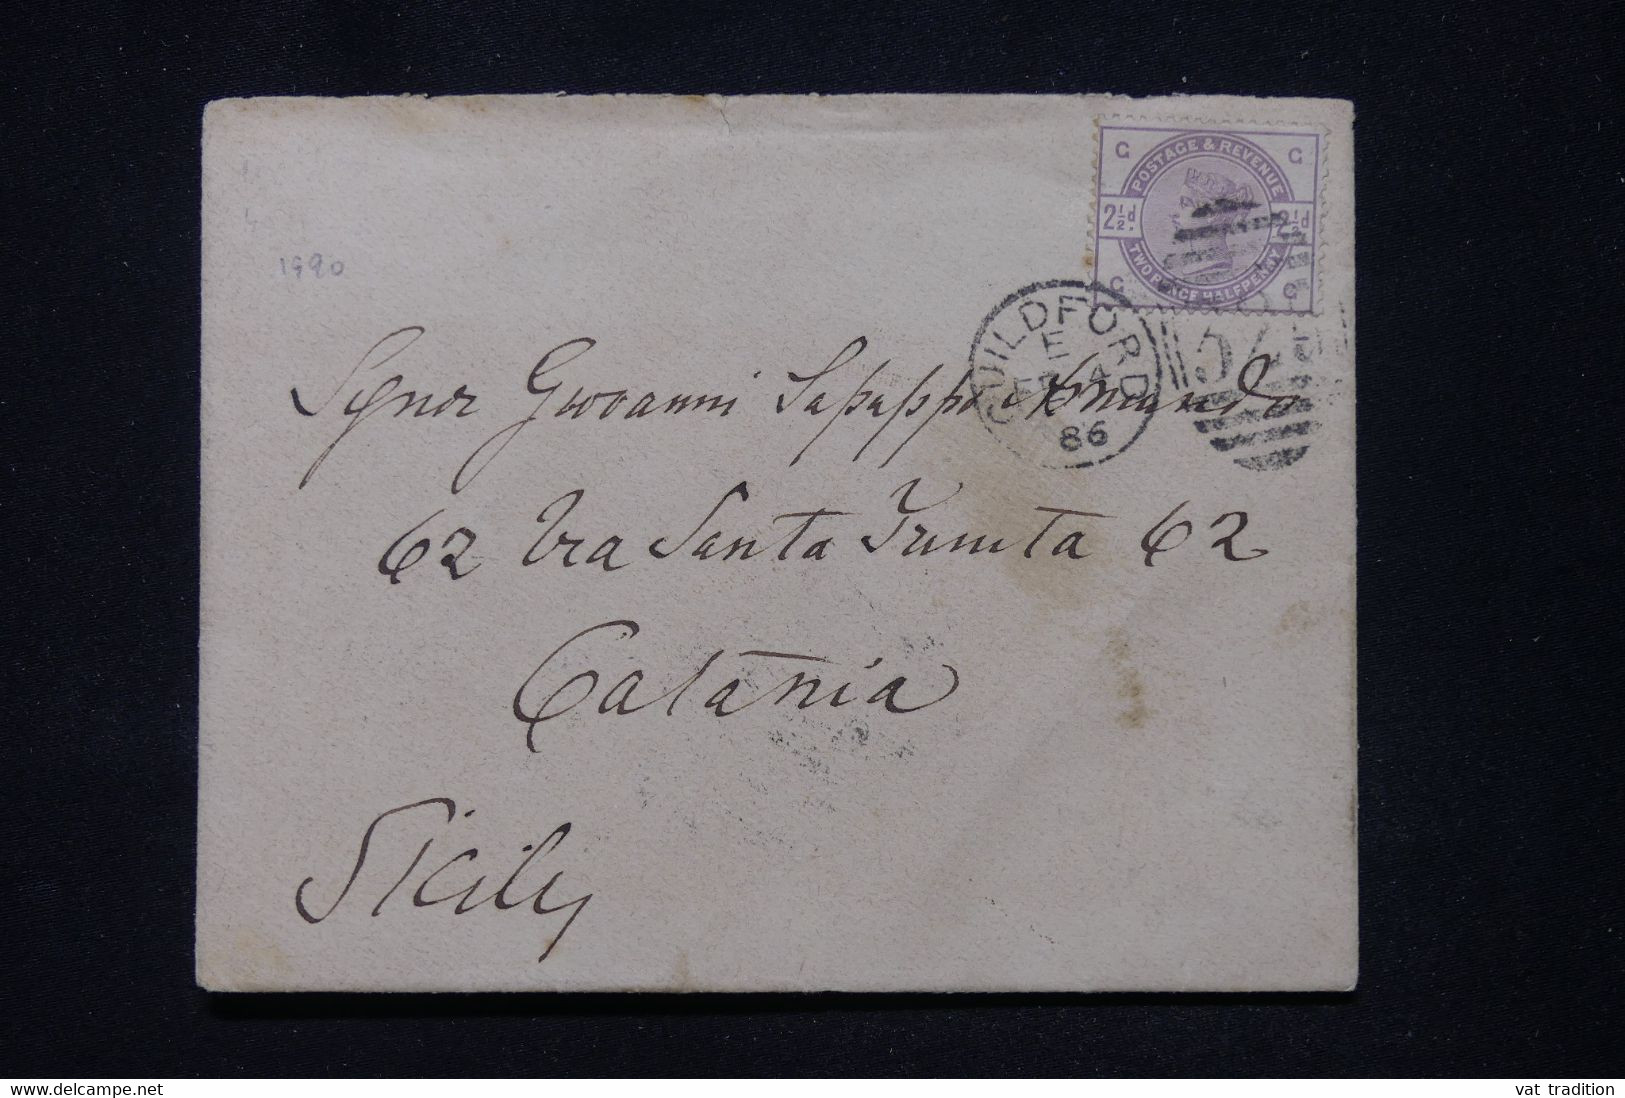 1990
G G
POSTAGE & REVENUE
2½d. 2½d.
TWO PENCE HALFPENNY
G G
GUILDFORD
E
FE 4
86
Signor Giovanni Sapuppo Asmundo
62 Via Santa Trinita 62
Catania
Sicily
delcampe.net
vat tradition